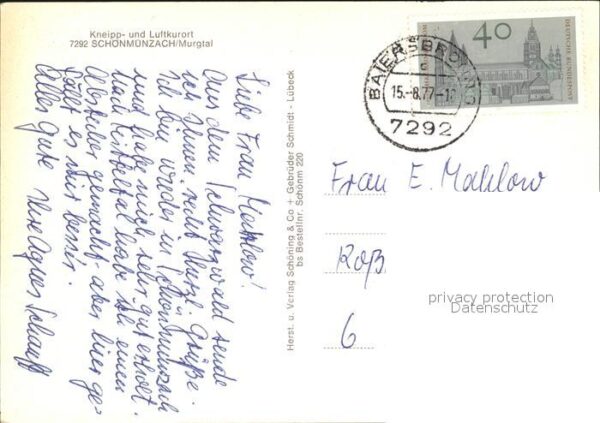 Kneipp- und Luftkurort
7292 SCHÖNMÜNZACH/Murgtal
Liebe Frau Mahlow!
Aus dem Schwarzwald sende
ich Ihnen recht herzl. Grüße.
Ich bin wieder in Schönmünzach
und habe mich sehr gut erholt.
Im
habe ich einen
Abstecher gemacht, aber hier ge-
fällt es mir besser.
Alles Gute Ihre Agnes Schauff
Herst. u. Verlag Schöning & Co + Gebrüder Schmidt - Lübeck
bs Bestellnr. Schönm 220
40
DEUTSCHE BUNDESPOST
BAIERSBRONN
15.-8.77-1
7292
Frau E. Mahlow
Roß
6
privacy protection
Datenschutz